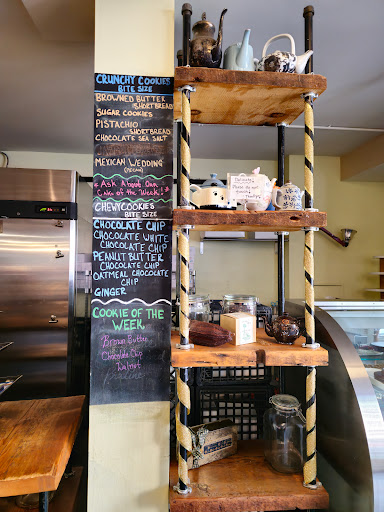 CRUNCHY COOKIES
BITE SIZE
BROWNED BUTTER
SHORTBREAD
SUGAR COOKIES
PISTACHIO
SHORTBREAD
CHOCOLATE SEA SALT
MEXICAN WEDDING
(PECAN)
*ASK ABOUT OUR
CAKE OF THE WEEK!*
CHEWY COOKIES
BITE SIZE
CHOCOLATE CHIP
CHOCOLATE WHITE
CHOCOLATE CHIP
PEANUT BUTTER
CHOCOLATE CHIP
OATMEAL CHOCOLATE
CHIP
GINGER
COOKIE OF THE
WEEK
Brown Butter
Chocolate Chip
Walnut